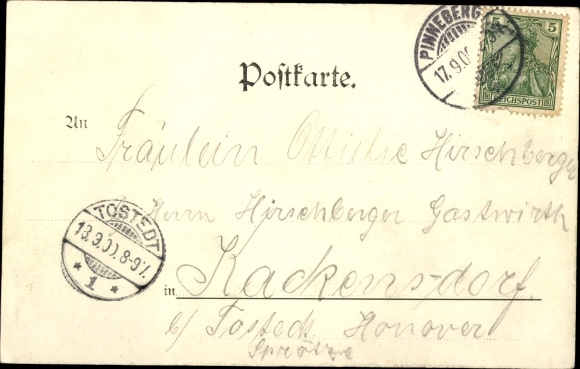 PINNEBERG
17.9.00
5
REICHSPOST
Postkarte.
An
Fräulein Ottilie Hirschberger
Herrn Hirschberger Gastwirth
TOSTEDT
18.9.00.8-9V.
* 1 *
in Kackensdorf
b/ Tostedt Honover
Sprötze